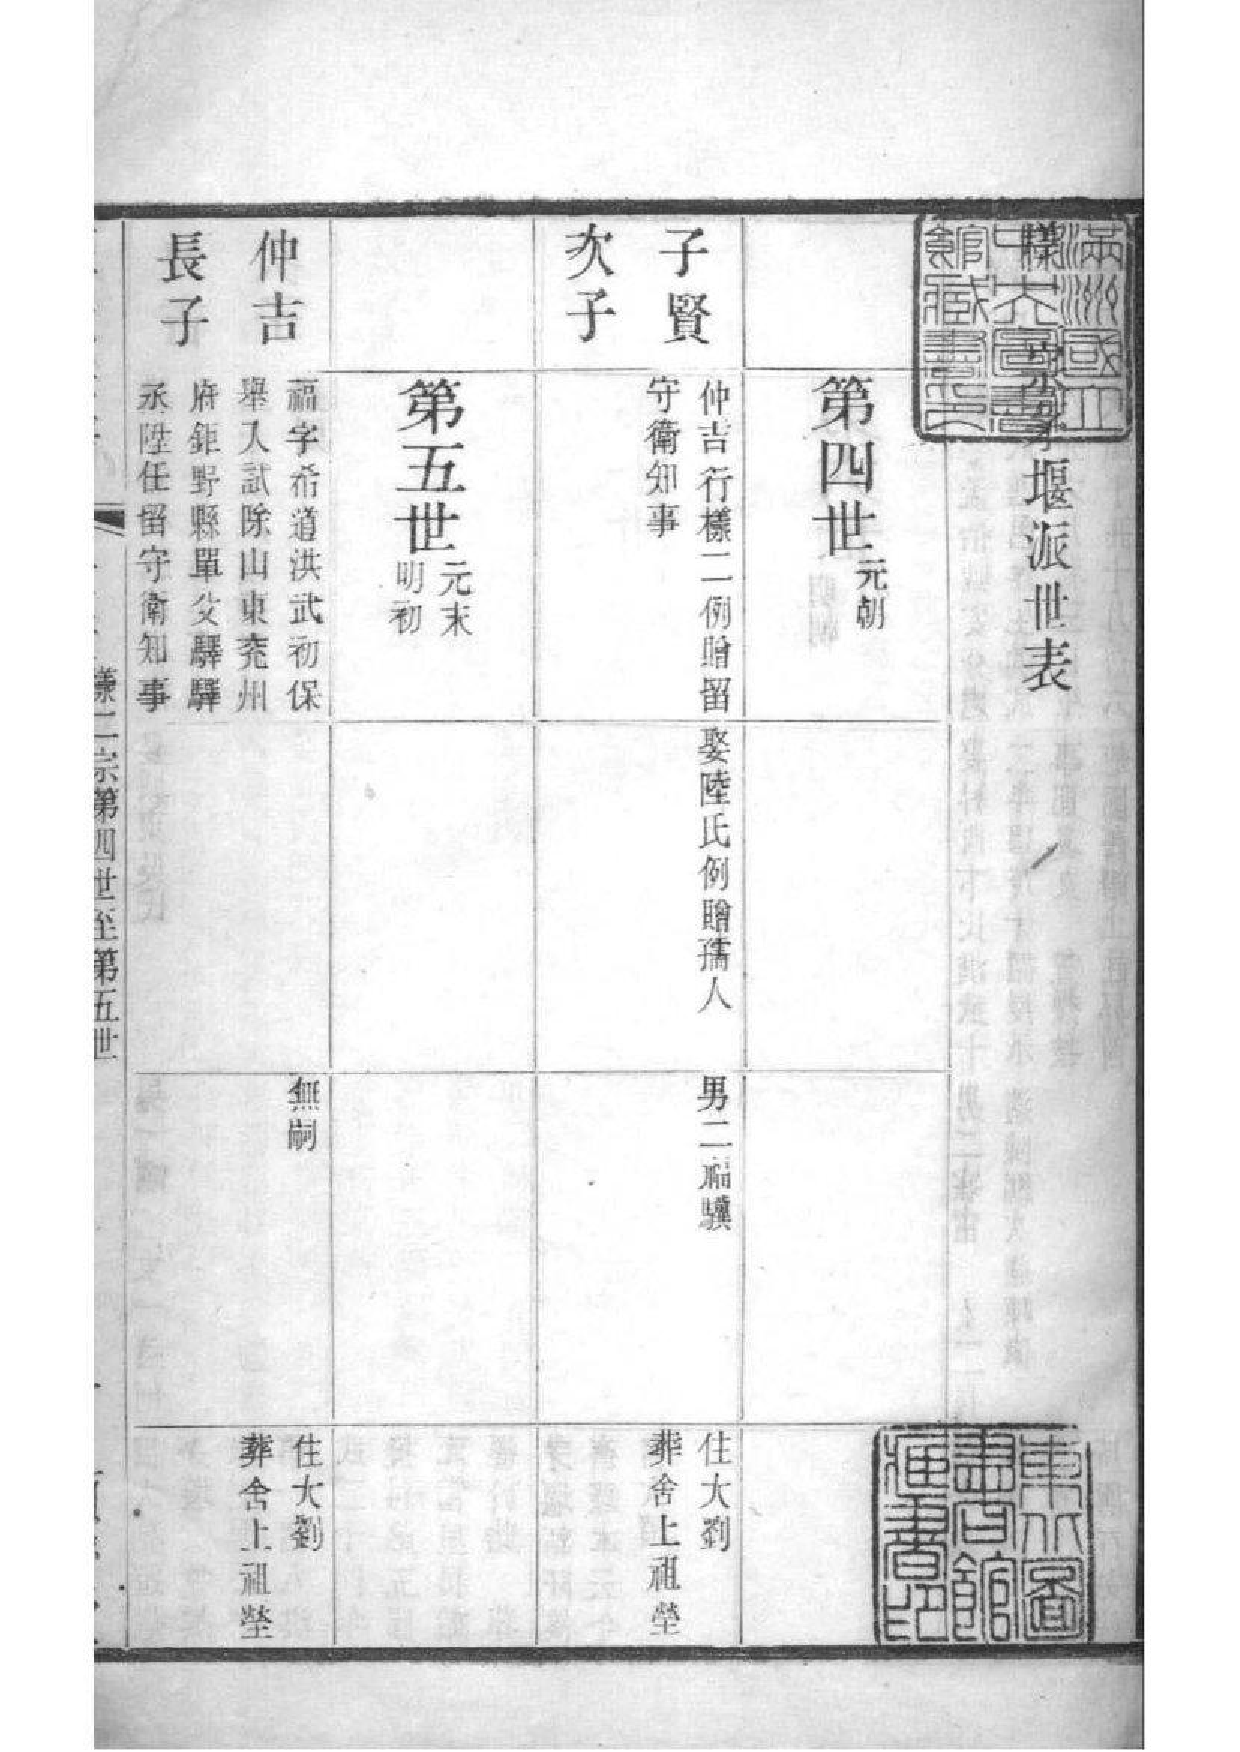 堰派世表
第四世
元朝
子賢
次子
仲吉行樣二例贈留
守衛知事
娶陸氏例贈孺人
男二福驥
住大劉
葬舍上祖塋
第五世
元末
明初
仲吉
長子
福字希道洪武初保
舉入試除山東兖州
府鉅野縣單父驛驛
丞陞任留守衛知事
無嗣
住大劉
葬舍上祖塋
二宗第四世至第五世
滿洲國立
中央圖書
館藏書之印
東北圖
書館
藏書印